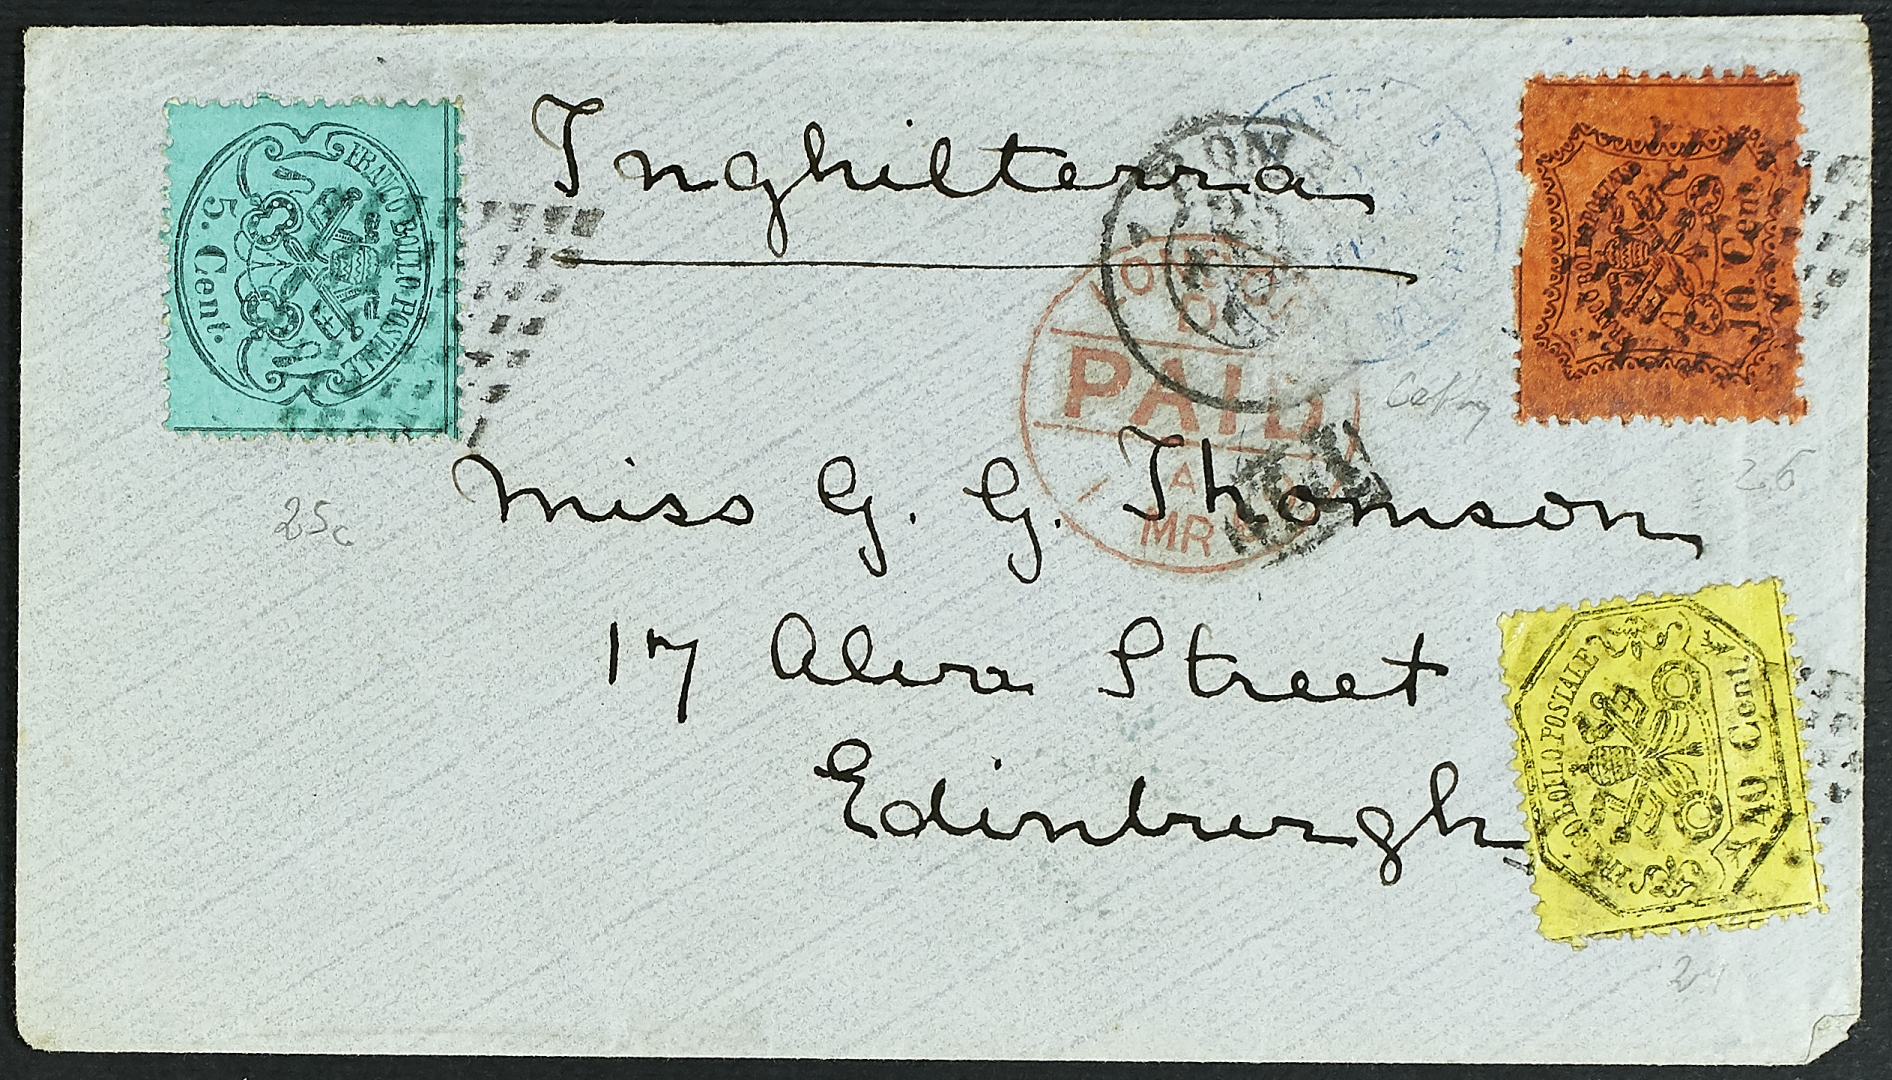 Inghilterra
FRANCO BOLLO POSTALE
5. Cent.
FRANCO BOLLO POSTALE
10 Cent.
PAID
A
MR
Miss G. G. Thomson
17 Alva Street
Edinburgh
FRANCO BOLLO POSTALE
40 Cent.
25c
26
24